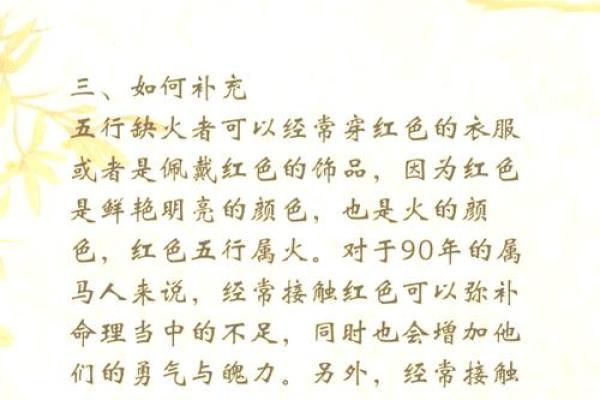 三、如何补充
五行缺火者可以经常穿红色的衣服
或者是佩戴红色的饰品，因为红色
是鲜艳明亮的颜色，也是火的颜
色，红色五行属火。对于90年的属
马人来说，经常接触红色可以弥补
命理当中的不足，同时也会增加他
们的勇气与魄力。另外，经常接触